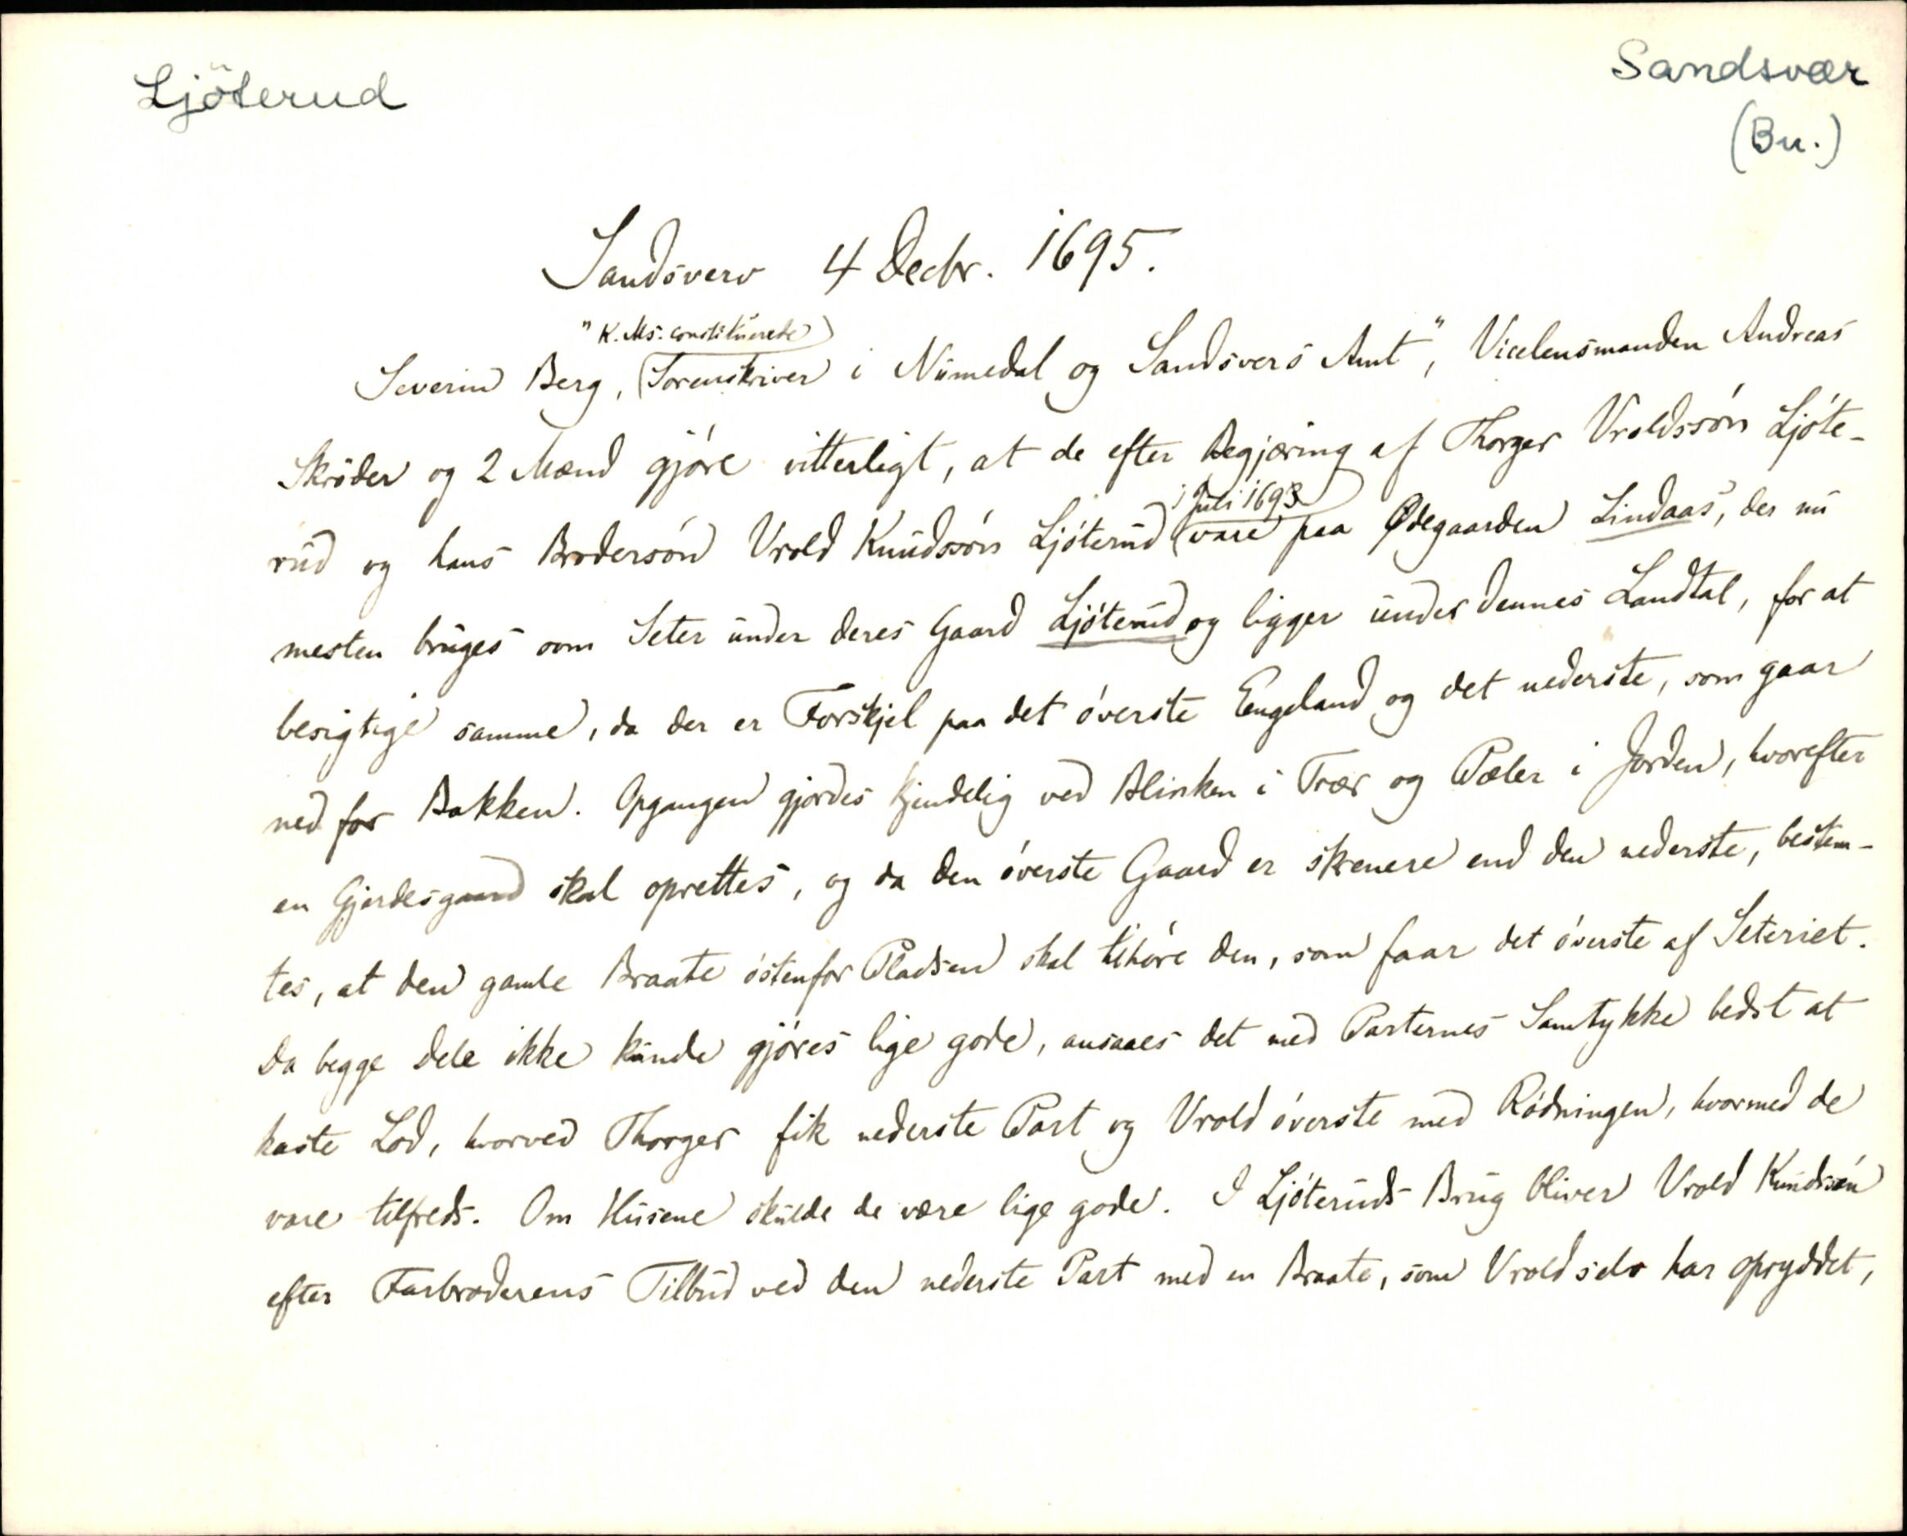 Ljöterud
Sandsvær
(Bu.)
Sandsverv 4 Decbr. 1695.
"K. Ms. constituerede
Severin Berg, Sorenskriver i Nummedal og Sandsvers Amt", Vicelensmanden Andreas
Skrøder og 2 Mænd gjøre vitterligt, at de efter Begjæring af Thorger Vroldssøn Ljøte-
i Juli 1693
rud og hans Brodersøn Vrold Knudssøn Ljøterud vare paa Ødegaarden Lindaas, der nu
mesten bruges som Seter under deres Gaard Ljøterud og ligger under dennes Landtal, for at
besigtige samme, da der er Forskjel paa det øverste Engeland og det nederste, som gaar
ned for Bakken. Opgangen gjordes kjendelig ved Blinken i Trær og Pæler i Jorden, hvorefter
en Gjerdesgaard skal oprettes, og da den øverste Gaard er skenere end den nederste, bestem-
tes, at den gamle Braate østenfor Pladsen skal tilhøre den, som faar det øverste af Seteriet.
Da begge Dele ikke kunde gjøres lige gode, ansaaes det med Parternes Samtykke bedst at
kaste Lod, hvorved Thorger fik nederste Part og Vrold øverste med Rødningen, hvormed de
vare tilfreds. Om Husene skulde de være lige gode. I Ljøteruds Brug bliver Vrold Knudssøn
efter Farbroderens Tilbud ved den nederste Part med en Braate, som Vrold selv har opryddet,